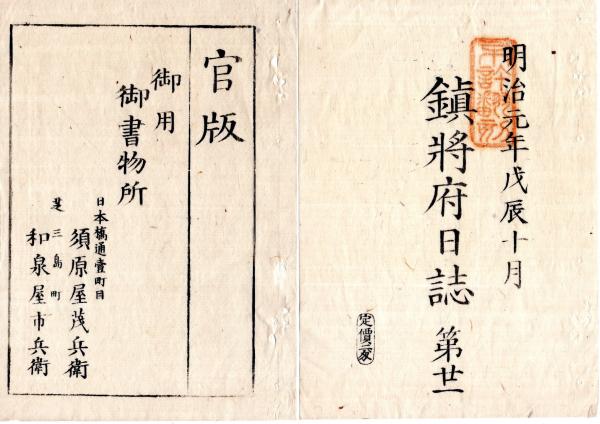 明治元年戊辰十月
鎮將府日誌 第廿一
官版
御用
御書物所
日本橋通壹町目
須原屋茂兵衛
芝三島町
和泉屋市兵衛